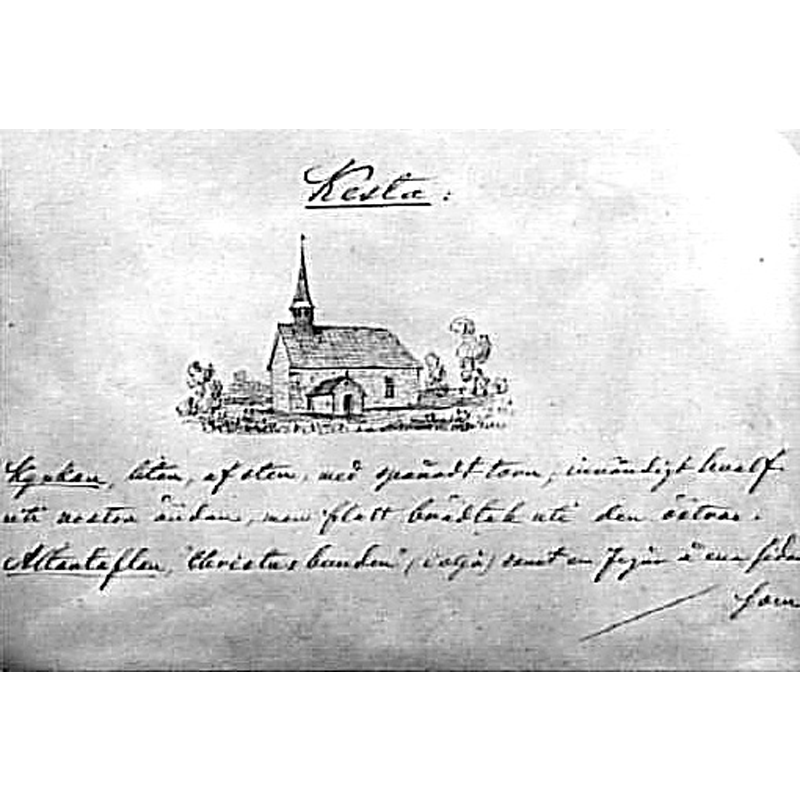 Kesta:
Kyrkan, liten, af sten, med spånadt torn, invändigt hvalf
uti vestra ändan, men flatt brädtak uti den östra.
Altartaflan, "Christus bunden" (i olja) samt en figur å ena sidan
som